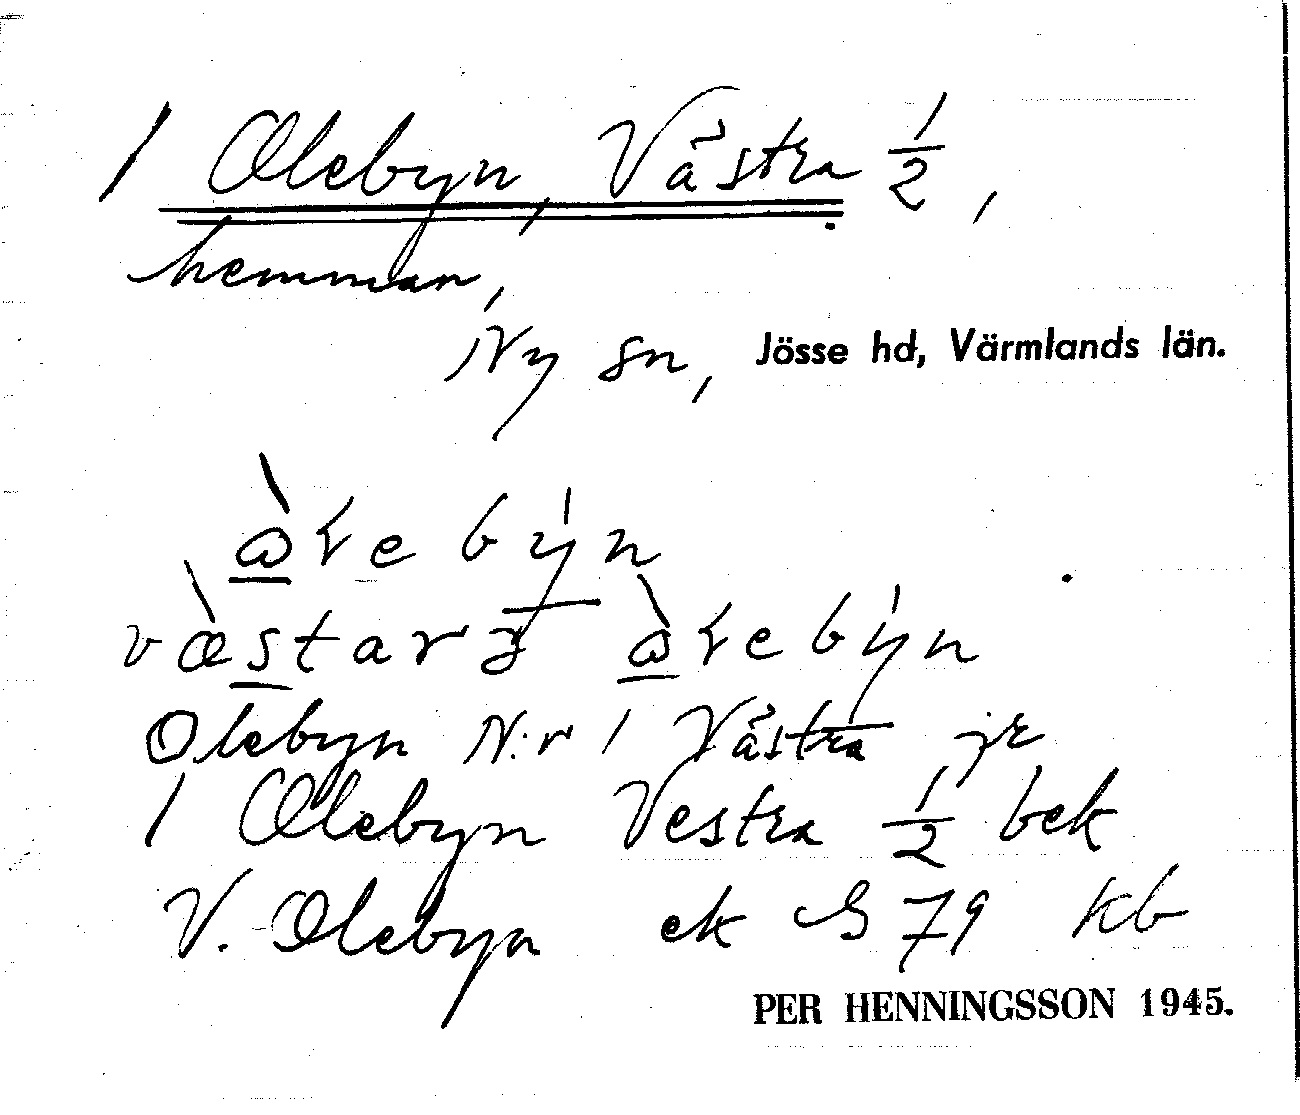 1 Olebyn, Västra 1/2,
hemman,
Ny sn, Jösse hd, Värmlands län.
Olebyn N:r 1 Västra jr
1 Olebyn Vestra 1/2 bek
V. Olebyn ek S 79 kb
PER HENNINGSSON 1945.